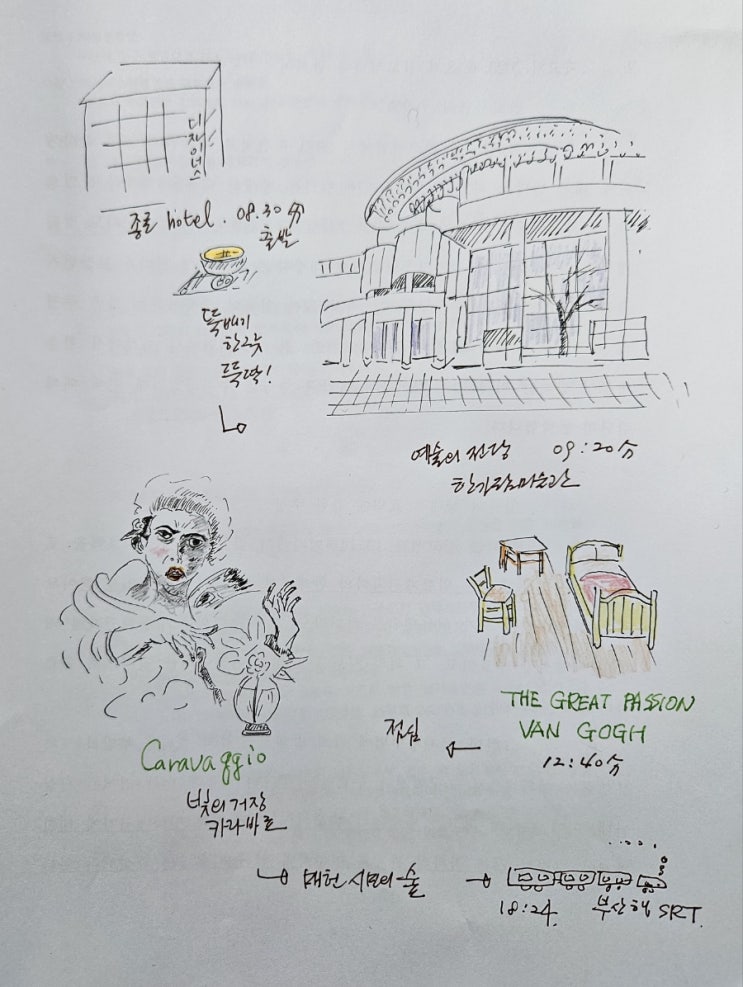 디자이너스
종로 hotel. 08.30分
출발
뚝배기
한그릇
뚝딱!
예술의전당 09:20分
한가람미술관
THE GREAT PASSION
VAN GOGH
12:40分
점심
Caravaggio
빛의 거장
카라바조
시민의 숲
18:24. 부산행 SRT.